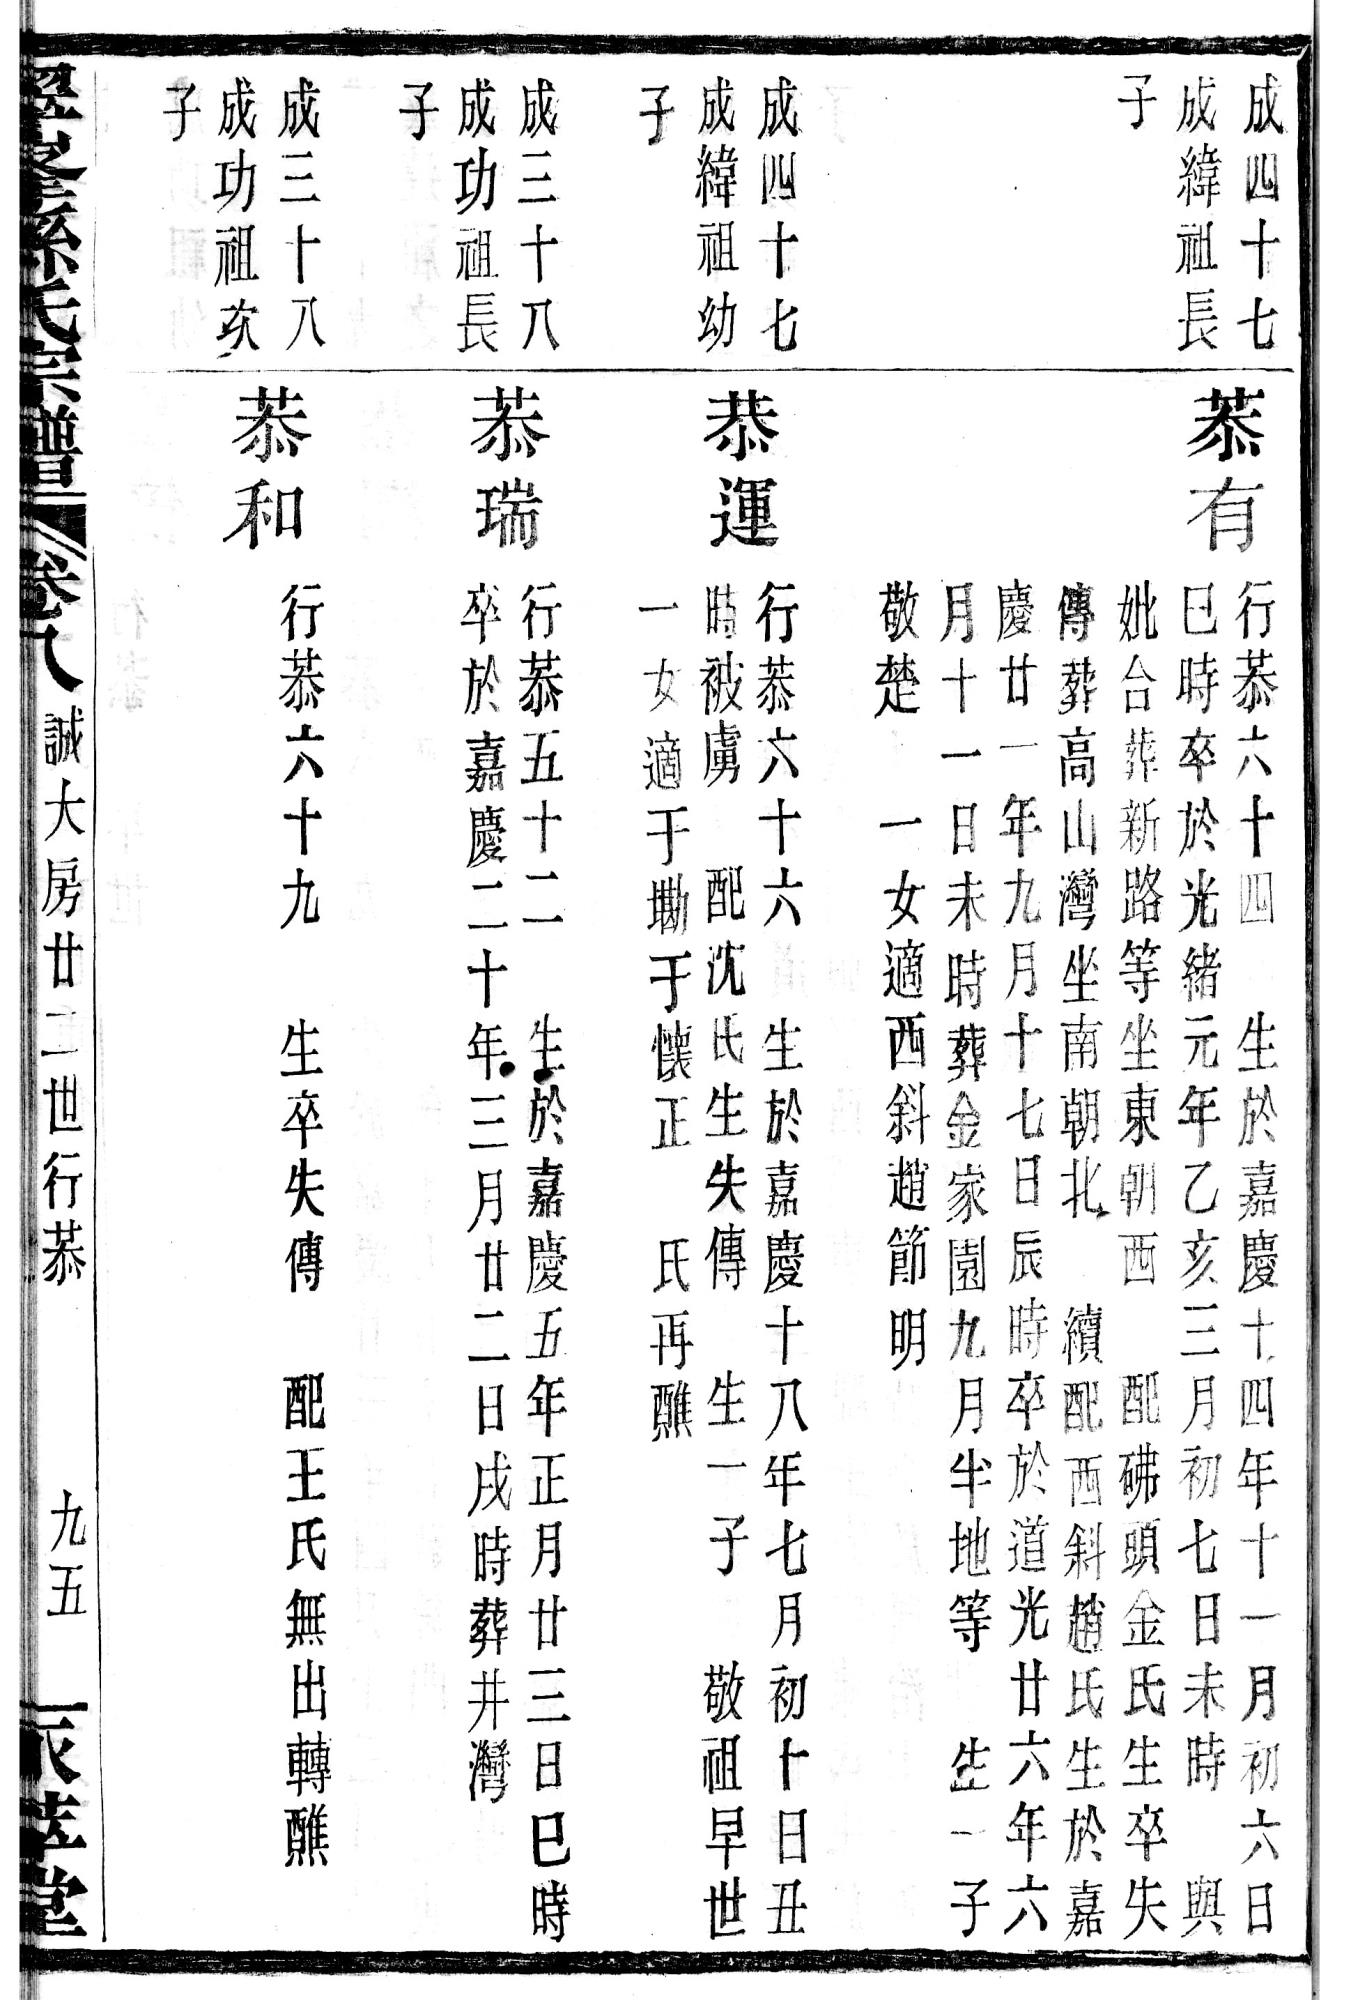 成四十七
成緯祖長
子
恭有
行恭六十四　生於嘉慶十四年十一月初六日
巳時卒於光緒元年乙亥三月初七日未時　與
妣台葬新路等坐東朝西　配砩頭金氏生卒失
傳葬高山灣坐南朝北　續配西斜趙氏生於嘉
慶廿一年九月十七日辰時卒於道光廿六年六
月十一日未時葬金家園九月半地等　生一子
敬楚　一女適西斜趙節明
成四十七
成緯祖幼
子
恭運
行恭六十六　生於嘉慶十八年七月初十日丑
時被虜　配沈氏生失傳　生一子　敬祖早世
一女適于墈于懷正　氏再醮
成三十八
成功祖長
子
恭瑞
行恭五十二　生於嘉慶五年正月廿三日巳時
卒於嘉慶二十年三月廿二日戌時葬井灣
成三十八
成功祖次
子
恭和
行恭六十九　生卒失傳　配王氏無出轉醮
孫氏宗譜　卷八　誠大房廿二世行恭　九五　萃堂